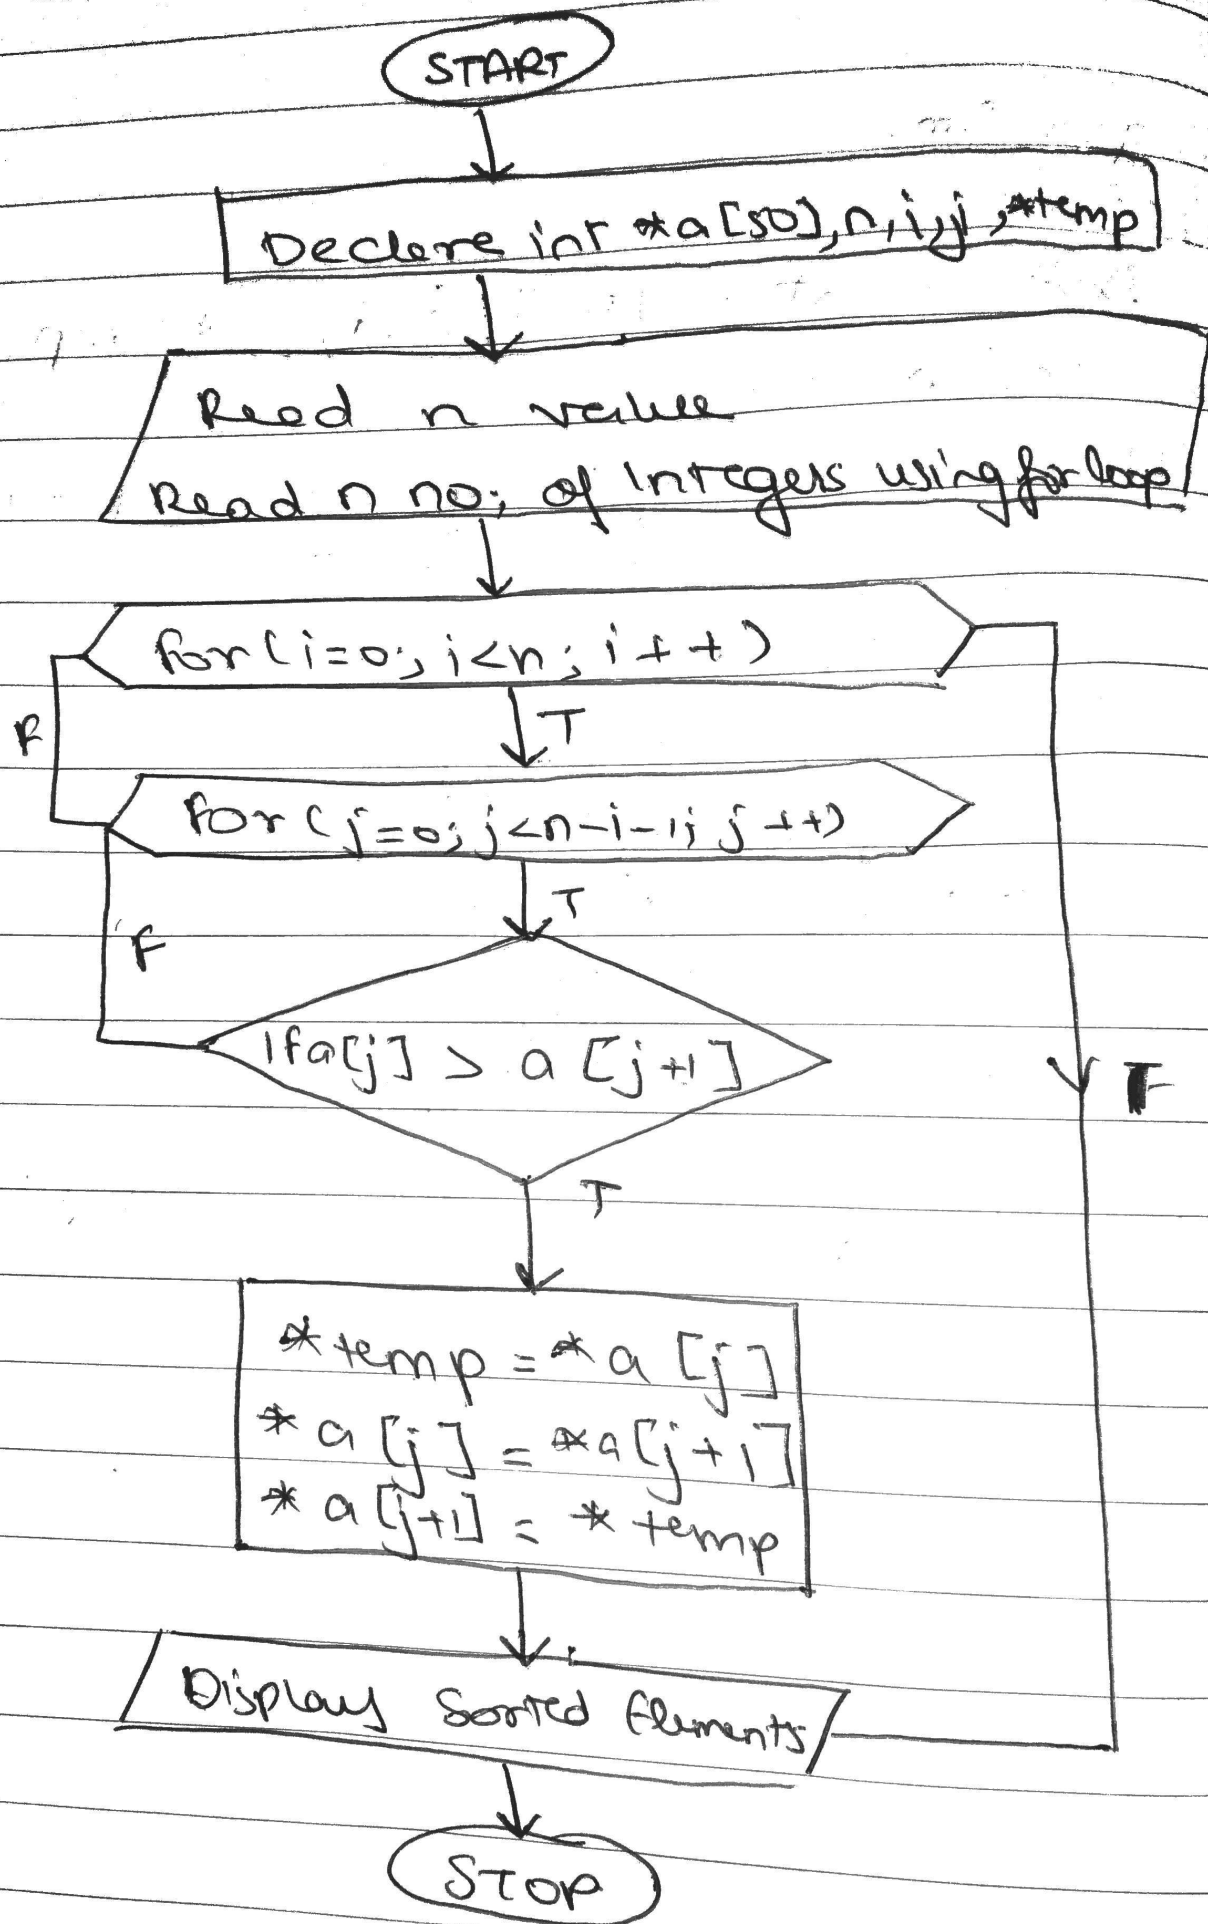 START
Declare int *a[50],n,i,j,*temp
Read n value
Read n no; of Integers using for loop
for(i=0; i<n; i++)
T
F
for(j=0; j<n-i-1; j++)
T
F
If a[j] > a[j+1]
F
T
*temp = *a[j]
*a[j] = *a[j+1]
*a[j+1] = *temp
Display Sorted Elements
STOP